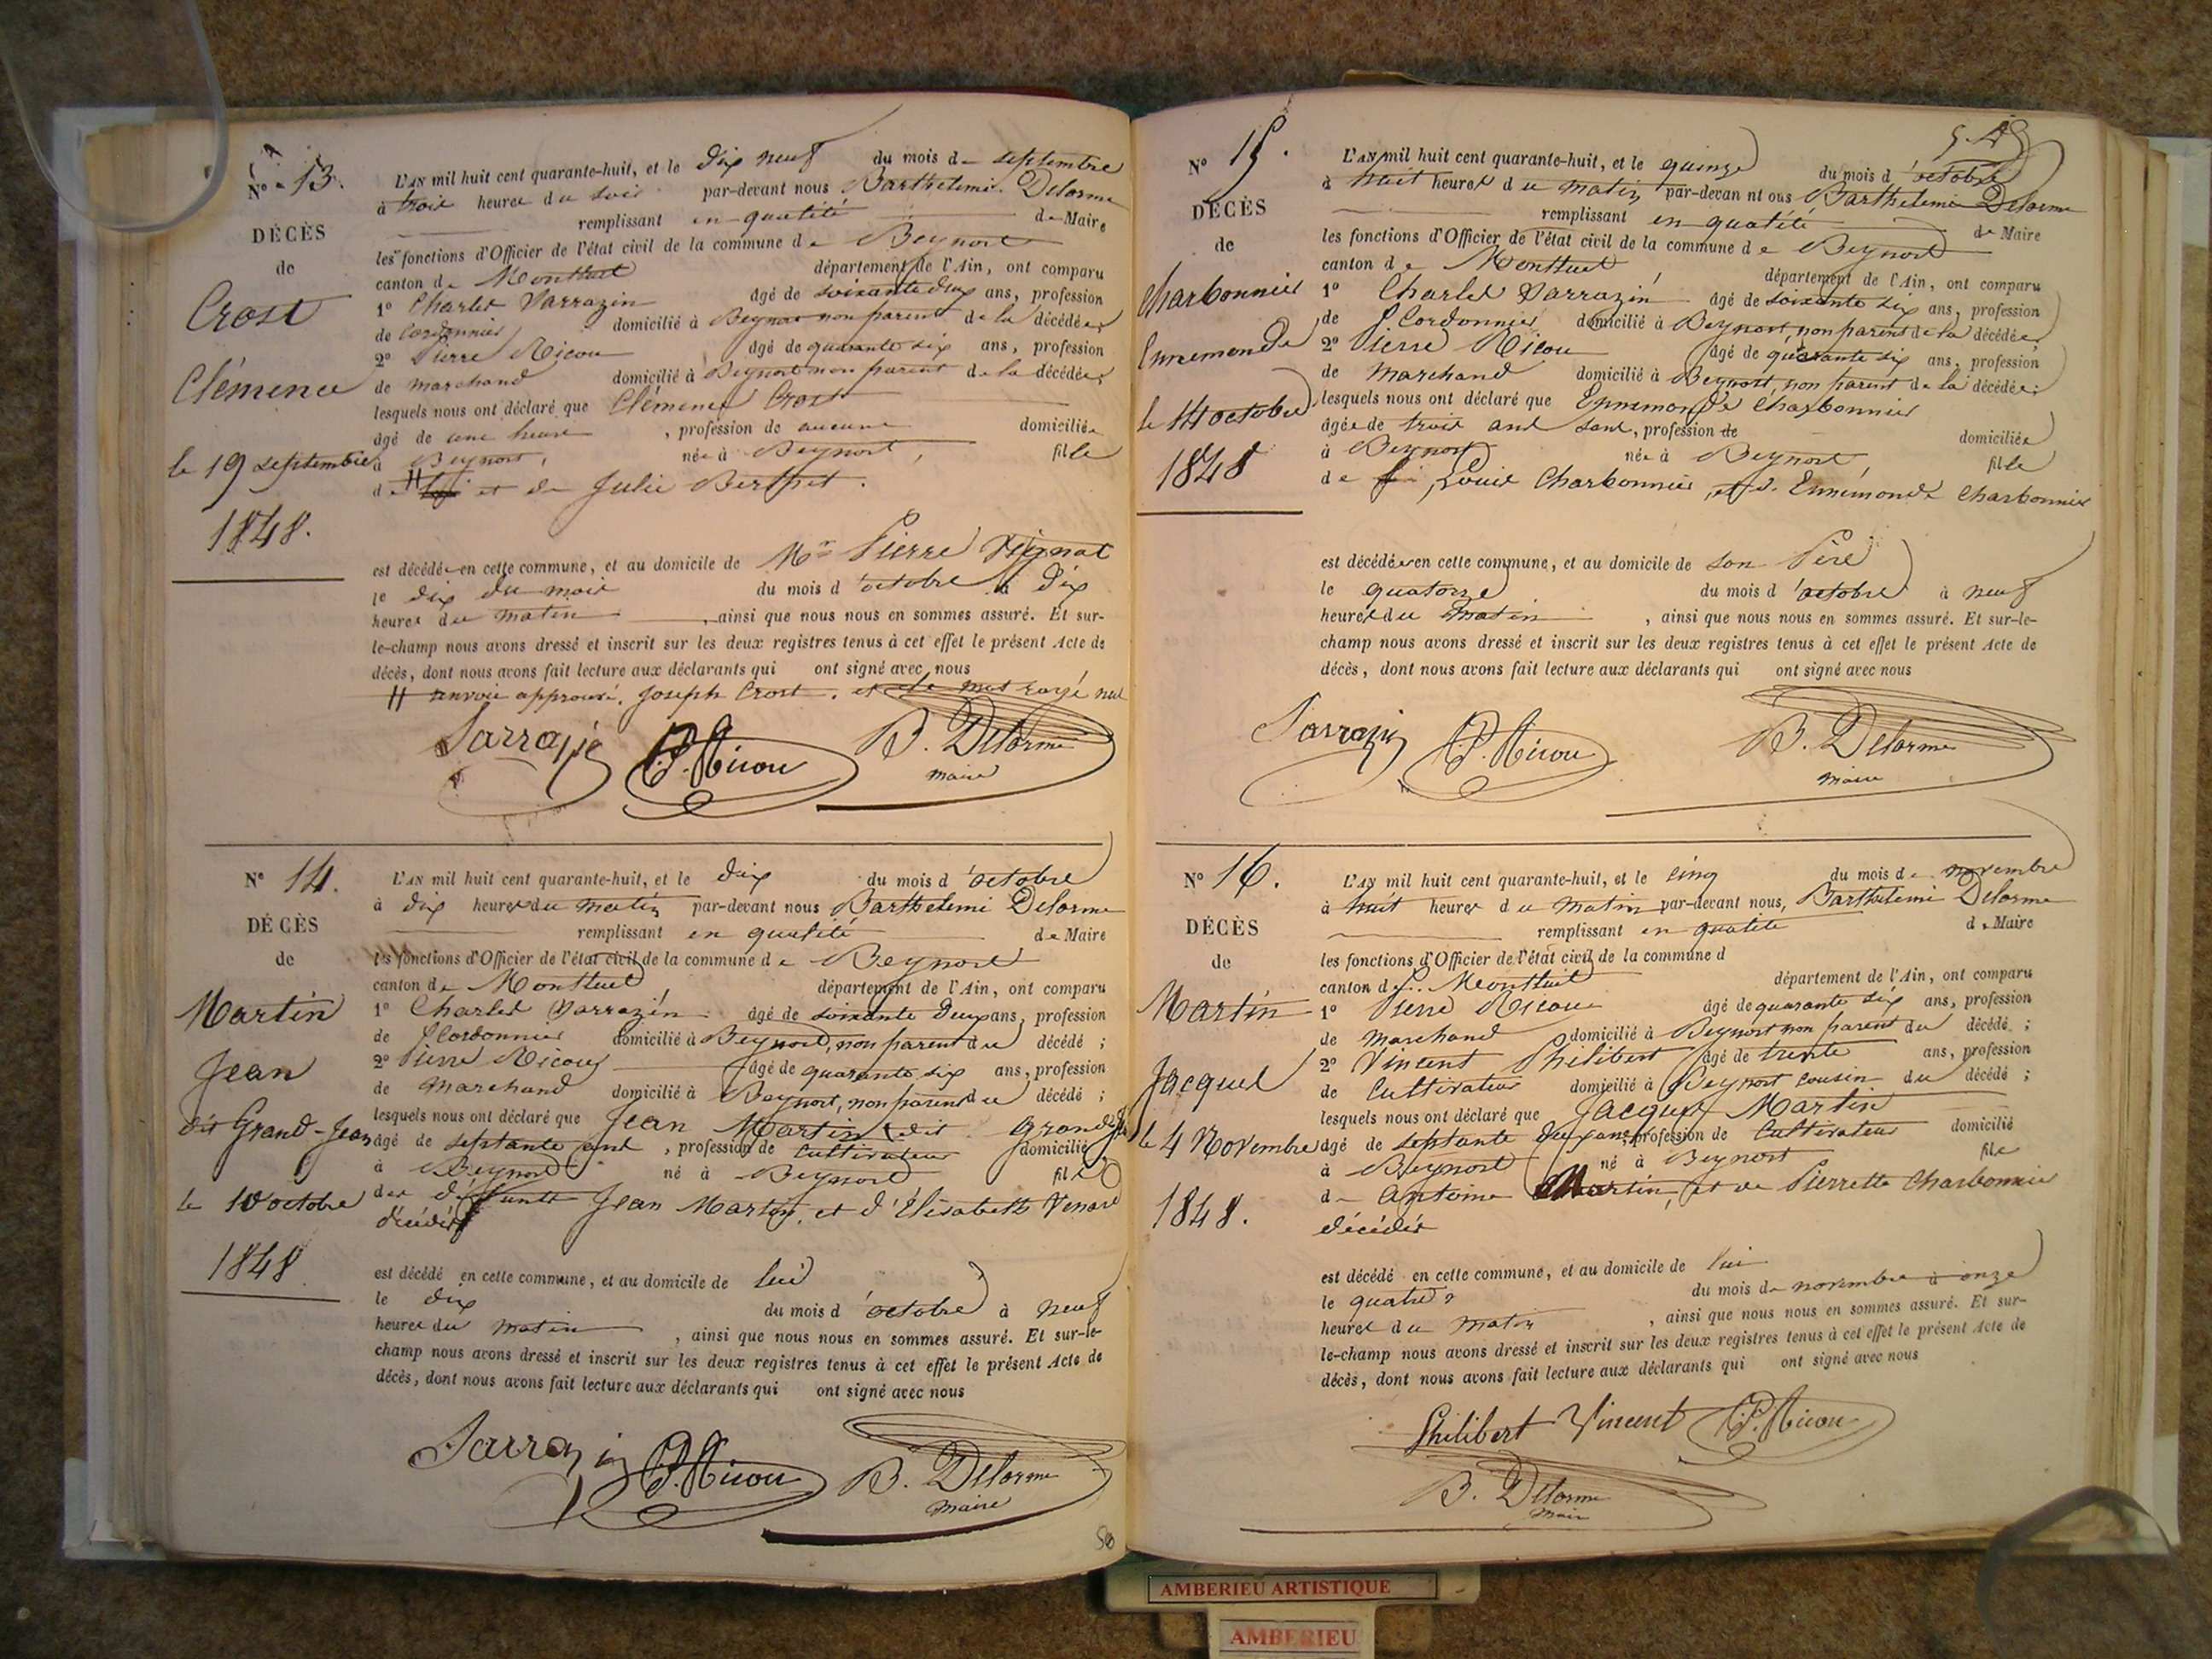 N° 13.
DÉCÈS
de
Crost
Clémence
le 19 septembre
1848.
L'AN mil huit cent quarante-huit, et le dix neuf du mois de septembre
à trois heures du soir par-devant nous Barthelemi Delorme
remplissant en qualité de Maire
les fonctions d'Officier de l'état civil de la commune de Beynost
canton de Montluel département de l'Ain, ont comparu
1° Charles Sarrazin âgé de soixante deux ans, profession
de Cordonnier domicilié à Beynost non parent de la décédée,
2° Pierre Nicou âgé de quarante six ans, profession
de marchand domicilié à Beynost non parent de la décédée,
lesquels nous ont déclaré que Clémence Crost
âgé de une heure, profession de aucune domiciliée
à Beynost, née à Beynost, fille
de et de Julie Berthet.
est décédée en cette commune, et au domicile de Mr Pierre
le dix du mois du mois d'octobre à dix
heures du matin, ainsi que nous nous en sommes assuré. Et sur-
le-champ nous avons dressé et inscrit sur les deux registres tenus à cet effet le présent Acte de
décès, dont nous avons fait lecture aux déclarants qui ont signé avec nous
renvoie approuvé, Joseph Crost. et le mot rayé nul
Sarrazin P. Nicou B. Delorme
maire
N° 14.
DÉCÈS
de
Martin
Jean
dit Grand-Jean
le 10 octobre
1848
L'AN mil huit cent quarante-huit, et le dix du mois d'octobre
à dix heures du matin par-devant nous Barthelemi Delorme
remplissant en qualité de Maire
les fonctions d'Officier de l'état civil de la commune de Beynost
canton de Montluel département de l'Ain, ont comparu
1° Charles Sarrazin âgé de soixante deux ans, profession
de Cordonnier domicilié à Beynost, non parent du décédé ;
2° Pierre Nicou âgé de quarante six ans, profession
de marchand domicilié à Beynost, non parent du décédé ;
lesquels nous ont déclaré que Jean Martin dit Grand Jean
âgé de septante ans, profession de cultivateur domicilié
à Beynost né à Beynost fils
des défunts Jean Martin, et d'Elisabeth Venard
décédés
est décédé en cette commune, et au domicile de lui
le dix du mois d'octobre à neuf
heures du matin, ainsi que nous nous en sommes assuré. Et sur-le-
champ nous avons dressé et inscrit sur les deux registres tenus à cet effet le présent Acte de
décès, dont nous avons fait lecture aux déclarants qui ont signé avec nous
Sarrazin P. Nicou B. Delorme
maire
N° 15.
DÉCÈS
de
Charbonnier
Ennemonde
le 14 octobre
1848
L'AN mil huit cent quarante-huit, et le quinze du mois d'octobre
à huit heures du matin par-devan nt ous Barthelemi Delorme
remplissant en qualité de Maire
les fonctions d'Officier de l'état civil de la commune de Beynost
canton de Montluel département de l'Ain, ont comparu
1° Charles Sarrazin âgé de soixante six ans, profession
de Cordonnier domicilié à Beynost, non parent de la décédée,
2° Pierre Nicou âgé de quarante six ans, profession
de marchand domicilié à Beynost, non parent de la décédée ;
lesquels nous ont déclaré que Ennemonde Charbonnier
âgée de trois ans, profession de domiciliée
à Beynost née à Beynost, fille
de Louis Charbonnier, et d'Ennemonde Charbonnier
est décédée en cette commune, et au domicile de son Père
le quatorze du mois d'octobre à neuf
heures du matin, ainsi que nous nous en sommes assuré. Et sur-le-
champ nous avons dressé et inscrit sur les deux registres tenus à cet effet le présent Acte de
décès, dont nous avons fait lecture aux déclarants qui ont signé avec nous
Sarrazin P. Nicou B. Delorme
maire
N° 16.
DÉCÈS
de
Martin
Jacques
le 4 Novembre
1848.
L'AN mil huit cent quarante-huit, et le cinq du mois de novembre
à huit heures du matin par-devant nous, Barthelemi Delorme
remplissant en qualité de Maire
les fonctions d'Officier de l'état civil de la commune d
canton de Montluel département de l'Ain, ont comparu
1° Pierre Nicou âgé de quarante six ans, profession
de marchand domicilié à Beynost non parent du décédé ;
2° Vincent Philibert âgé de trente ans, profession
de cultivateur domicilié à Beynost cousin du décédé ;
lesquels nous ont déclaré que Jacques Martin
âgé de septante deux ans, profession de cultivateur domicilié
à Beynost né à Beynost fils
de Antoine Martin, et de Pierrette Charbonnier
décédés
est décédé en cette commune, et au domicile de lui
le quatre du mois de novembre à onze
heures du matin, ainsi que nous nous en sommes assuré. Et sur-
le-champ nous avons dressé et inscrit sur les deux registres tenus à cet effet le présent Acte de
décès, dont nous avons fait lecture aux déclarants qui ont signé avec nous
Philibert Vincent P. Nicou
B. Delorme
maire
AMBERIEU ARTISTIQUE
AMBERIEU